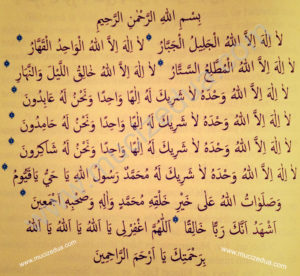 بِسْمِ اللهِ الرَّحْمٰنِ الرَّحِيمِ
لَا اِلٰهَ اِلَّا اللهُ الْجَلِيلُ الْجَبَّارُ * لَا اِلٰهَ اِلَّا اللهُ الْوَاحِدُ الْقَهَّارُ *
لَا اِلٰهَ اِلَّا اللهُ الْمُطَّلِعُ السَّتَّارُ * لَا اِلٰهَ اِلَّا اللهُ خَالِقُ اللَّيْلَ وَالنَّهَارِ
لَا اِلٰهَ اِلَّا اللهُ وَحْدَهُ لَا شَرِيكَ لَهُ اِلٰهًا وَاحِدًا وَنَحْنُ لَهُ عَابِدُونَ *
لَا اِلٰهَ اِلَّا اللهُ وَحْدَهُ لَا شَرِيكَ لَهُ اِلٰهًا وَاحِدًا وَنَحْنُ لَهُ حَامِدُونَ *
لَا اِلٰهَ اِلَّا اللهُ وَحْدَهُ لَا شَرِيكَ لَهُ اِلٰهًا وَاحِدًا وَنَحْنُ لَهُ شَاكِرُونَ *
لَا اِلٰهَ اِلَّا اللهُ وَحْدَهُ لَا شَرِيكَ لَهُ مُحَمَّدٌ رَسُولُ اللهِ يَا حَيُّ يَا قَيُّومُ *
وَصَلَوَاتُ اللهِ عَلَى خَيْرِ خَلْقِهِ مُحَمَّدٍ وَآلِهِ وَصَحْبِهِ اَجْمَعِينَ *
اَشْهَدُ اَنَّكَ رَبًّا خَالِقًا * اَللّٰهُمَّ اغْفِرْلِى يَا اَللهُ يَا اَللهُ يَا اَللهُ
بِرَحْمَتِكَ يَا اَرْحَمَ الرَّاحِمِينَ
www.mucizedua.com
www.mucizedua.com